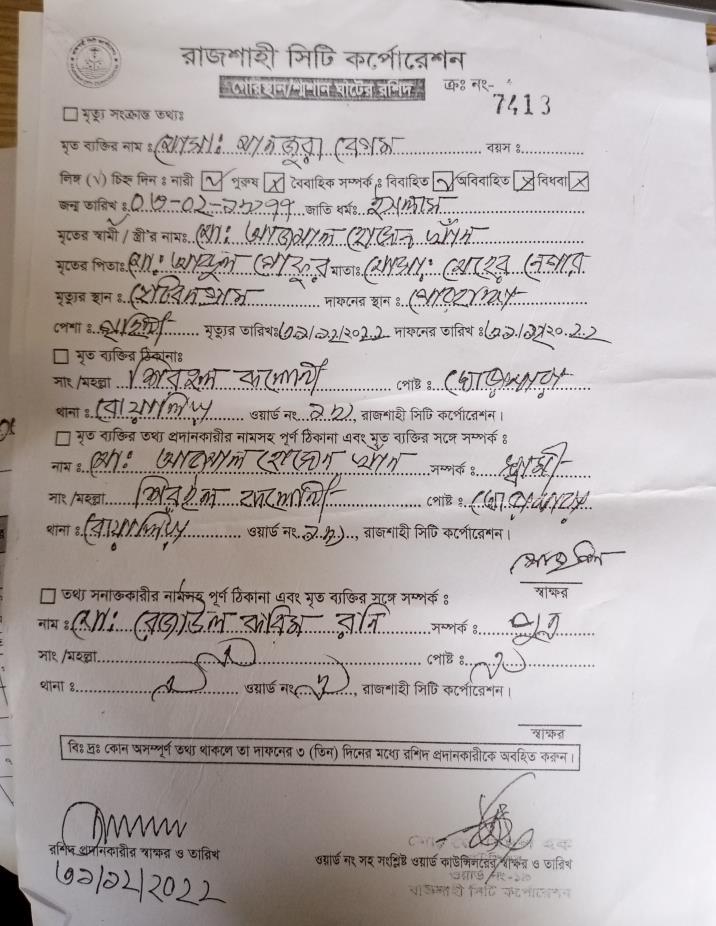 রাজশাহী সিটি কর্পোরেশন
গোরস্থান/শ্মশান ঘাটের রশিদ ক্রঃ নং- 7413
মৃত্যু সংক্রান্ত তথ্যঃ
মৃত ব্যক্তির নাম : মোসা: মানজুরা বেগম বয়স :
লিঙ্গ (√) চিহ্ন দিন : নারী √ পুরুষ X বৈবাহিক সম্পর্ক : বিবাহিত √ অবিবাহিত X বিধবা X
জন্ম তারিখ : জাতি ধর্মঃ ইসলাম
মৃতের স্বামী / স্ত্রী'র নামঃ মো: হোসেন
মৃতের পিতাঃ মো: আবুল মাতাঃ মোসা: মেহের নেগার
মৃত্যুর স্থান : দাফনের স্থান :
পেশা : গৃহিনী মৃত্যুর তারিখঃ ৩১/১২/২০২২ দাফনের তারিখ : ৩১/১২/২০২২
মৃত ব্যক্তির ঠিকানাঃ
সাং /মহল্লা শিরইল কলোনী পোষ্ট : ঘোড়ামারা
থানা : বোয়ালিয়া ওয়ার্ড নং , রাজশাহী সিটি কর্পোরেশন।
মৃত ব্যক্তি তথ্য প্রদানকারীর নামসহ পূর্ণ ঠিকানা এবং মৃত ব্যক্তির সঙ্গে সম্পর্ক :
নাম : মো: হোসেন সম্পর্ক : স্বামী
সাং /মহল্লা শিরইল কলোনী পোষ্ট : ঘোড়ামারা
থানা : বোয়ালিয়া ওয়ার্ড নং , রাজশাহী সিটি কর্পোরেশন।
স্বাক্ষর
তথ্য সনাক্তকারীর নামসহ পূর্ণ ঠিকানা এবং মৃত ব্যক্তির সঙ্গে সম্পর্ক :
নাম : মো: রেজাউল করিম রনি সম্পর্ক : পুত্র
সাং /মহল্লা পোষ্ট :
থানা : ওয়ার্ড নং , রাজশাহী সিটি কর্পোরেশন।
স্বাক্ষর
বিঃ দ্রঃ কোন অসম্পূর্ণ তথ্য থাকলে তা দাফনের ৩ (তিন) দিনের মধ্যে রশিদ প্রদানকারীকে অবহিত করুন।
রশিদ প্রদানকারীর স্বাক্ষর ও তারিখ
৩১/১২/২০২২
ওয়ার্ড নং সহ সংশ্লিষ্ট ওয়ার্ড কাউন্সিলরের স্বাক্ষর ও তারিখ
রাজশাহী সিটি কর্পোরেশন